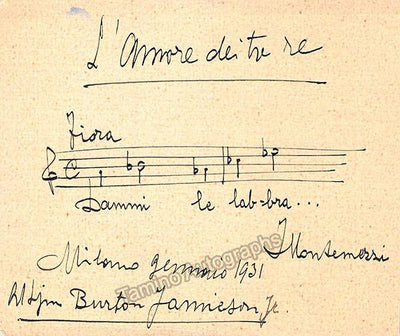 L'Amore dei tre re
Fiora
Dammi le lab=bra...
IMontemezzi
Milano gennaio 1931
Tamino Autographs
Burton Jamieson, Jr.